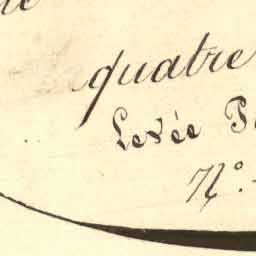 quatre
Levée
N°.